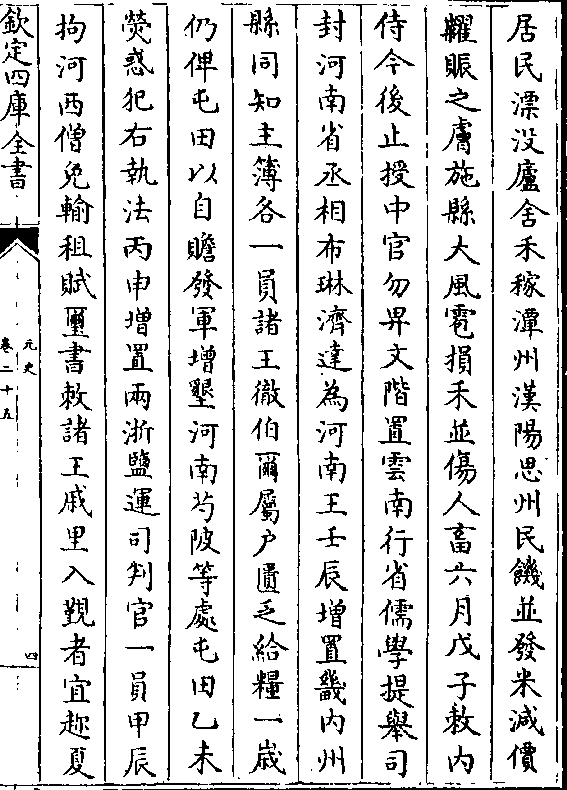 居民漂没廬舍禾稼潭州漢陽思州民饑並發米減價
糶賑之膚施縣大風雹損禾並傷人畜六月戊子敕内
侍今後止授中官勿畀文階置雲南行省儒學提舉司
封河南省丞相布琳濟達為河南王壬辰增置畿内州
縣同知主簿各一員諸王徹伯爾屬户匱乏給糧一歳
仍俾屯田以自贍發軍增墾河南芍陂等處屯田乙未
熒惑犯右執法丙申增置兩浙鹽運司判官一員甲辰
拘河西僧免輸租賦璽書敕諸王戚里入覲者宜趂夏
欽定四庫全書
元史
卷二十五
四